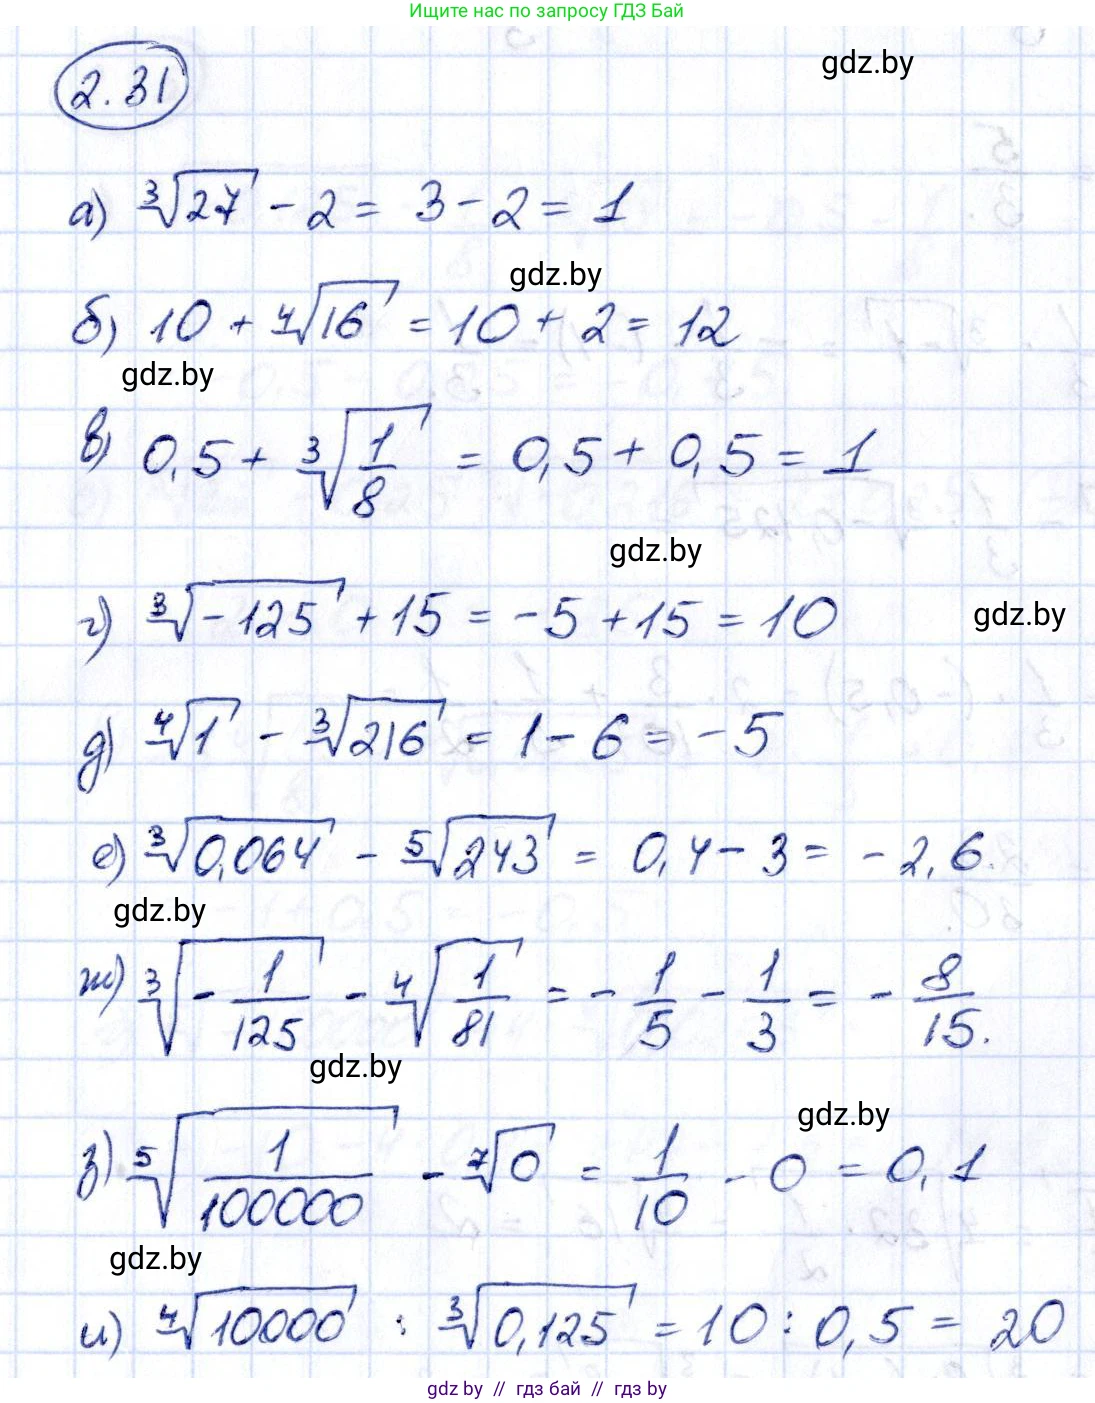 Ищите нас по запросу ГДЗ Бай
2.31
gdz.by
а) ∛27 - 2 = 3 - 2 = 1
gdz.by
б) 10 + ∜16 = 10 + 2 = 12
gdz.by
в) 0,5 + ∛(1/8) = 0,5 + 0,5 = 1
gdz.by
г) ∛(-125) + 15 = -5 + 15 = 10
gdz.by
д) ∜1 - ∛216 = 1 - 6 = -5
е) ∛0,064 - ⁵√243 = 0,4 - 3 = -2,6.
gdz.by
ж) ∛(-1/125) - ∜(1/81) = -1/5 - 1/3 = -8/15.
gdz.by
gdz.by
з) ⁵√(1/100000) - ⁷√0 = 1/10 - 0 = 0,1
gdz.by
и) ∜10000 : ∛0,125 = 10 : 0,5 = 20
gdz by // гдз бай // гдз by